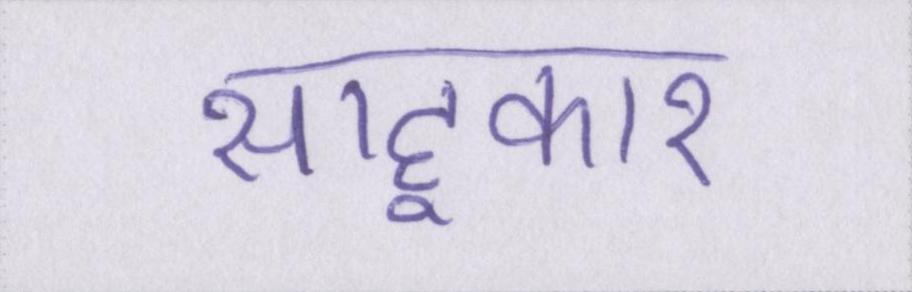 साहूकार